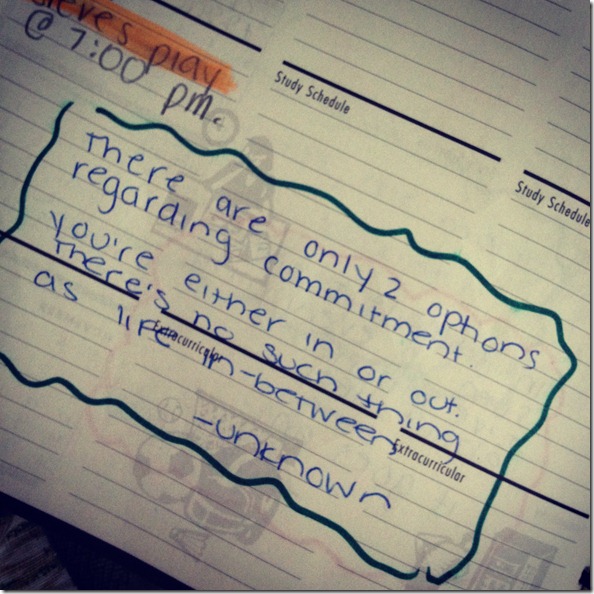 Steve's play
@ 7:00
pm.
Study Schedule
Study Schedule
There are only 2 options
regarding commitment.
You're either in or out.
There's no such thing
as life in-between
-unknown
Extracurricular
Extracurricular